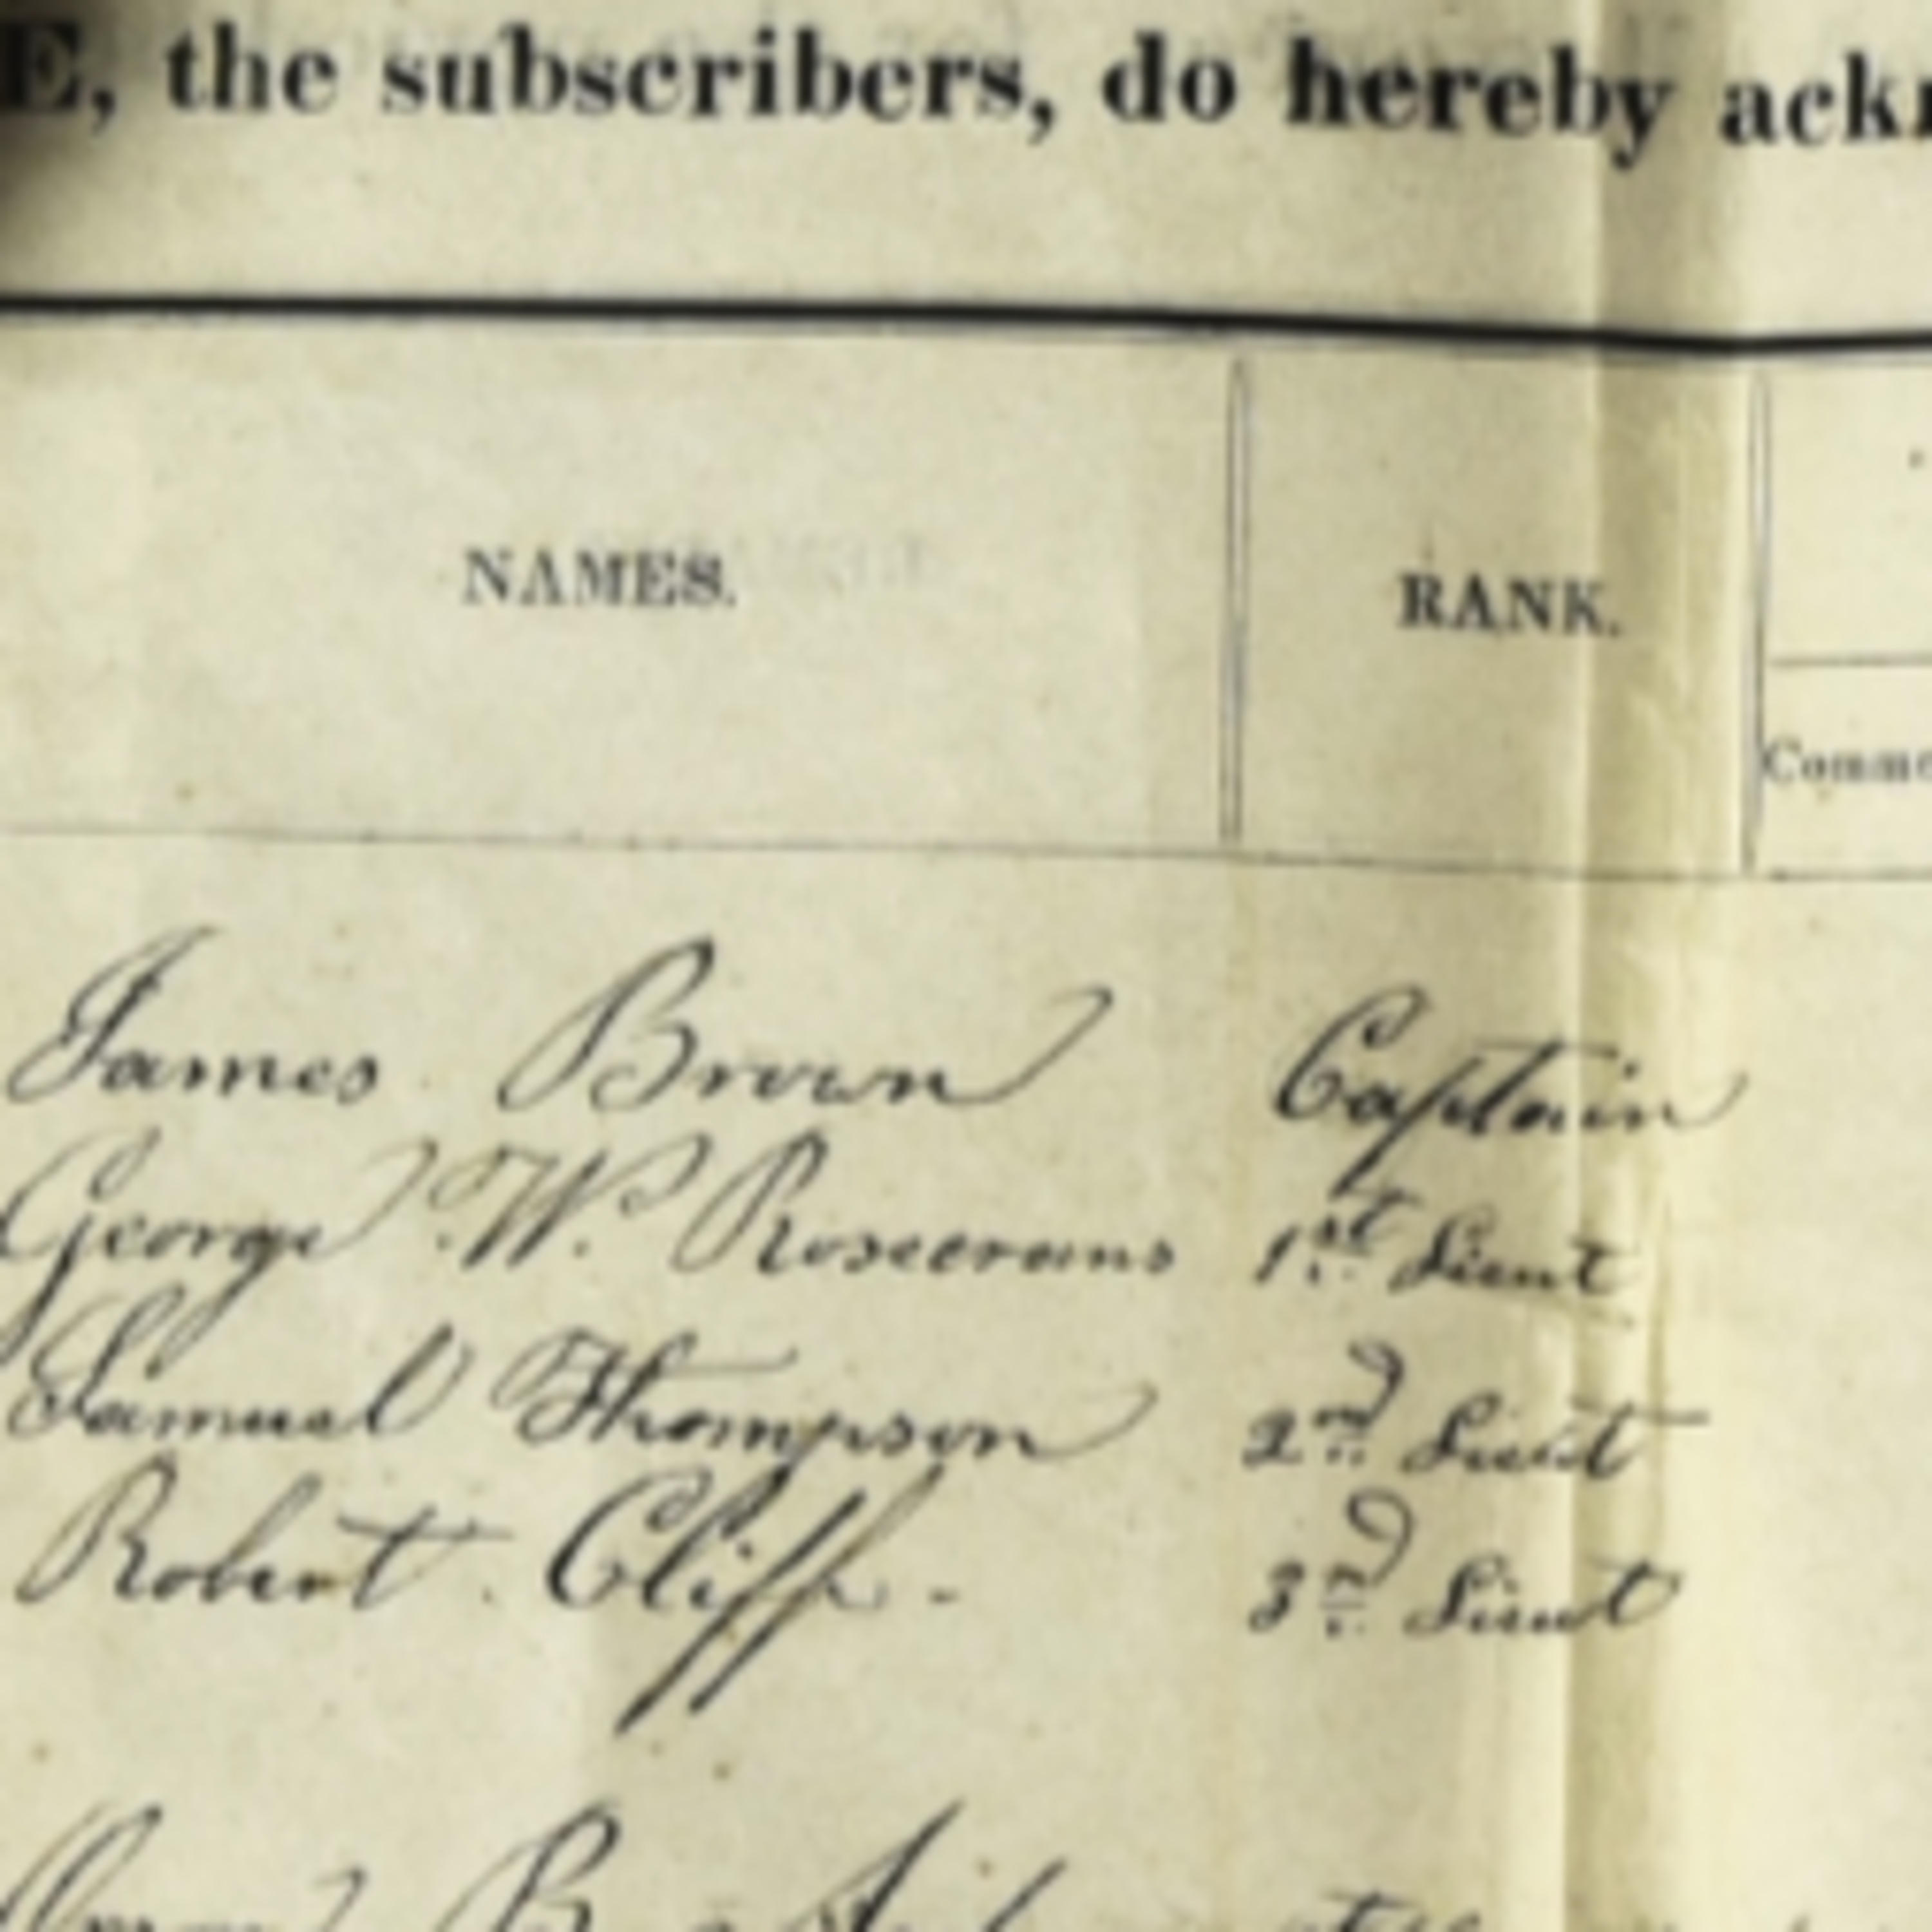 E, the subscribers, do hereby ackn
NAMES. RANK.
Comme
James Brown Captain
George W. Rosecrans 1st Lieut
Samuel Thompson 2nd Lieut
Robert Cliff - 3rd Lieut